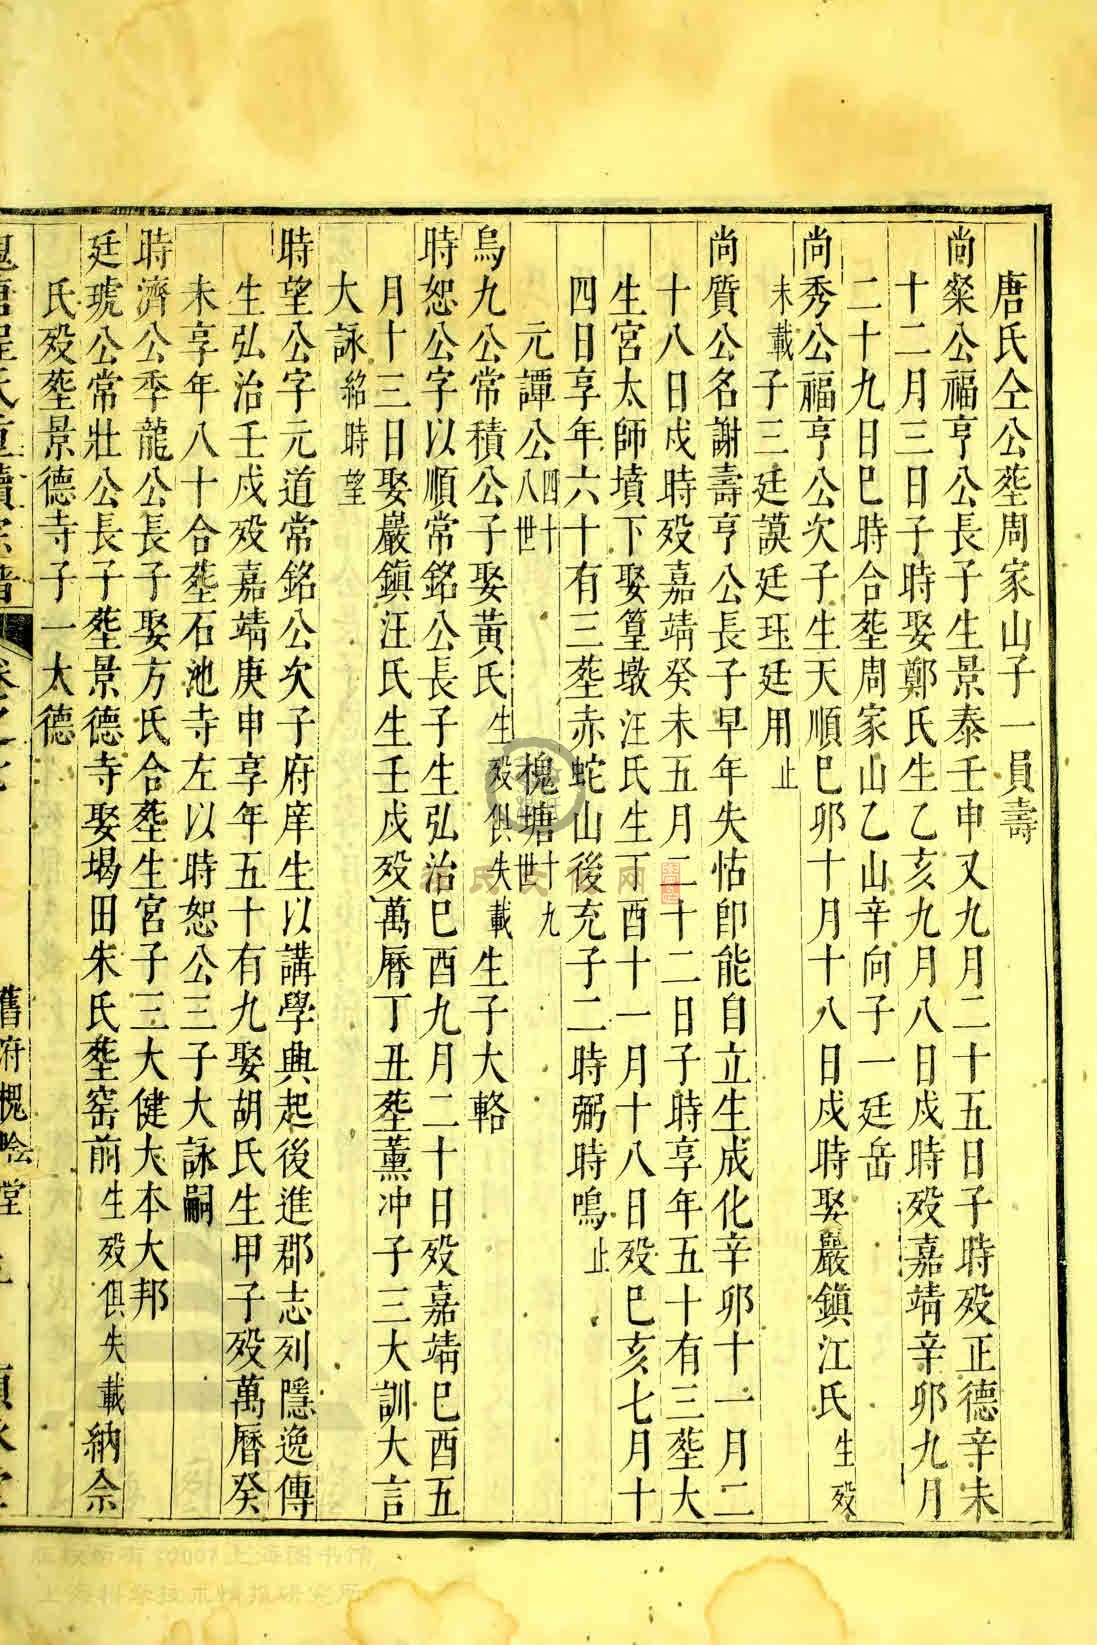 唐氏仝公塟周家山子一員壽
尚粲公福亨公長子生景泰壬申又九月二十五日子時歿正德辛未
十二月三日子時娶鄭氏生乙亥九月八日戍時歿嘉靖辛卯九月
二十九日巳時合塟周家山乙山辛向子一廷岳
尚秀公福亨公次子生天順巳卯十月十八日戍時娶巖鎮江氏生歿
未載子三廷謨廷珏廷用止
尚質公名謝壽亨公長子早年失怙卽能自立生成化辛卯十一月二
十八日戍時歿嘉靖癸未五月二十二日子時享年五十有三塟大
生宮太師墳下娶篁墩汪氏生丁酉十一月十八日歿巳亥七月十
四日享年六十有三塟赤蛇山後充子二時弼時鳴止
元譚公四十八世 槐塘十九世
烏九公常積公子娶黃氏生歿俱失載生子大輅
時恕公字以順常銘公長子生弘治巳酉九月二十日歿嘉靖巳酉五
月十三日娶巖鎮汪氏生壬戍歿萬曆丁丑塟薰冲子三大訓大言
大詠紹時望
時望公字元道常銘公次子府庠生以講學興起後進郡志列隱逸傳
生弘治壬戍歿嘉靖庚申享年五十有九娶胡氏生甲子歿萬曆癸
未享年八十合塟石池寺左以時恕公三子大詠嗣
時濟公季龍公長子娶方氏合塟生宮子三大健大本大邦
廷琥公常壯公長子塟景德寺娶堨田朱氏塟窑前生歿俱失載納佘
氏歿塟景德寺子一太德
舊府槐陰堂